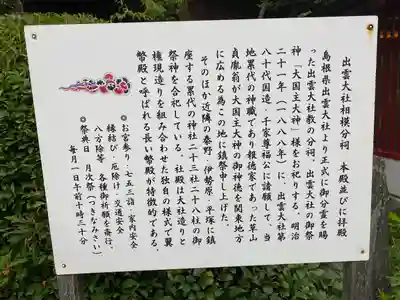 出雲大社相模分祠　本殿並びに拝殿
島根県出雲大社より正式に御分霊を賜
った出雲大社教の分祠。出雲大社の御祭
神「大国主大神」様をお祀りする。明治
二十一年（一八八八年）に、出雲大社第
八十代国造・千家尊福公に請願して、当
地累代の神職であり報徳家であった草山
貞胤翁が大国主大神の御神徳を関東地方
に広める為この地に鎮祭申し上げた。
そのほか近隣の秦野・伊勢原・平塚に鎮
座する累代の神社二十三社二十八柱の御
祭神を合祀している。社殿は大社造りと
権現造りを組み合わせた独自の様式で翼
幣殿と呼ばれる長い幣殿が特徴的である。
◎お宮参り・七五三詣・家内安全
縁結び・厄除け・交通安全
八方除等　各種御祈願を斎行。
◎祭典日　月次祭（つきなみさい）
毎月一日午前十時三十分